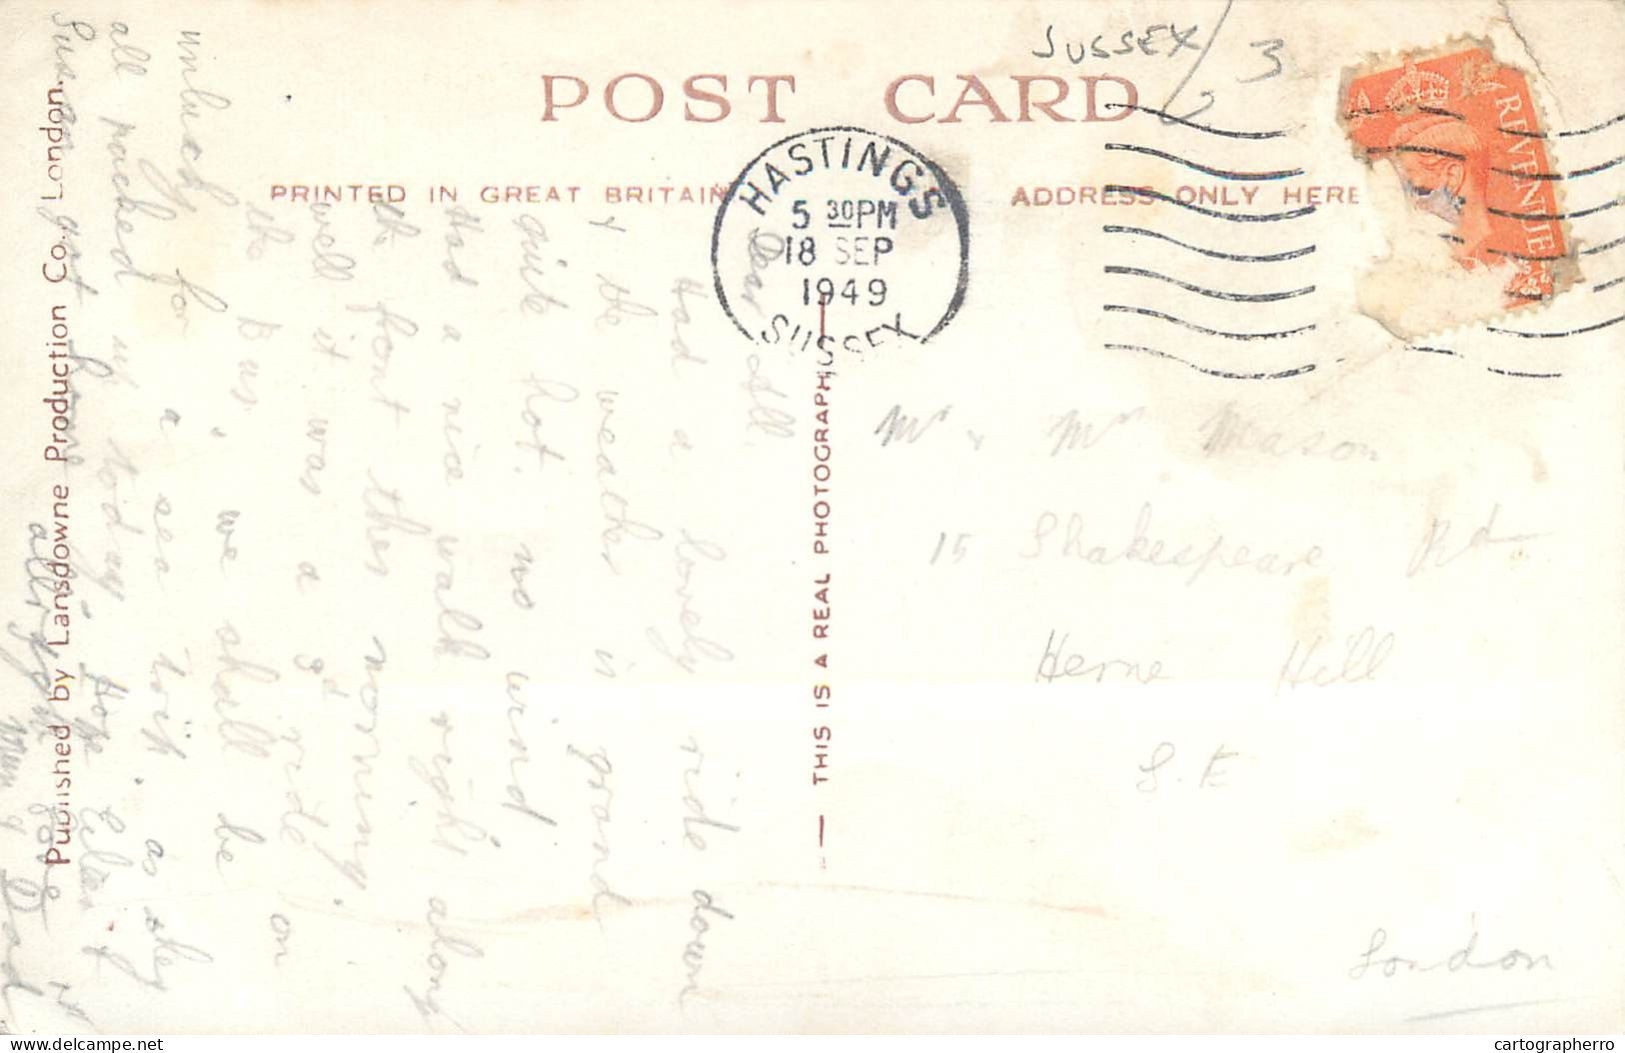 SUSSEX / 3
POST CARD
PRINTED IN GREAT BRITAIN
ADDRESS ONLY HERE
HASTINGS
5 30 PM
18 SEP
1949
SUSSEX
REVENUE
Dear All
Had a lovely ride down
& the weather is grand
quite hot. no wind
Had a nice walk right along
the front this morning.
well it was a gd ride on
the Bus. we shall be
unlucky for a sea trip. as they
all packed up today. Hope Lilian &
Susan got home allright
Mum & Dad
Mr & Mrs Mason
15 Shakespeare Rd
Herne Hill
S.E
London
THIS IS A REAL PHOTOGRAPH
Published by Lansdowne Production Co. London.
delcampe.net
cartographerro